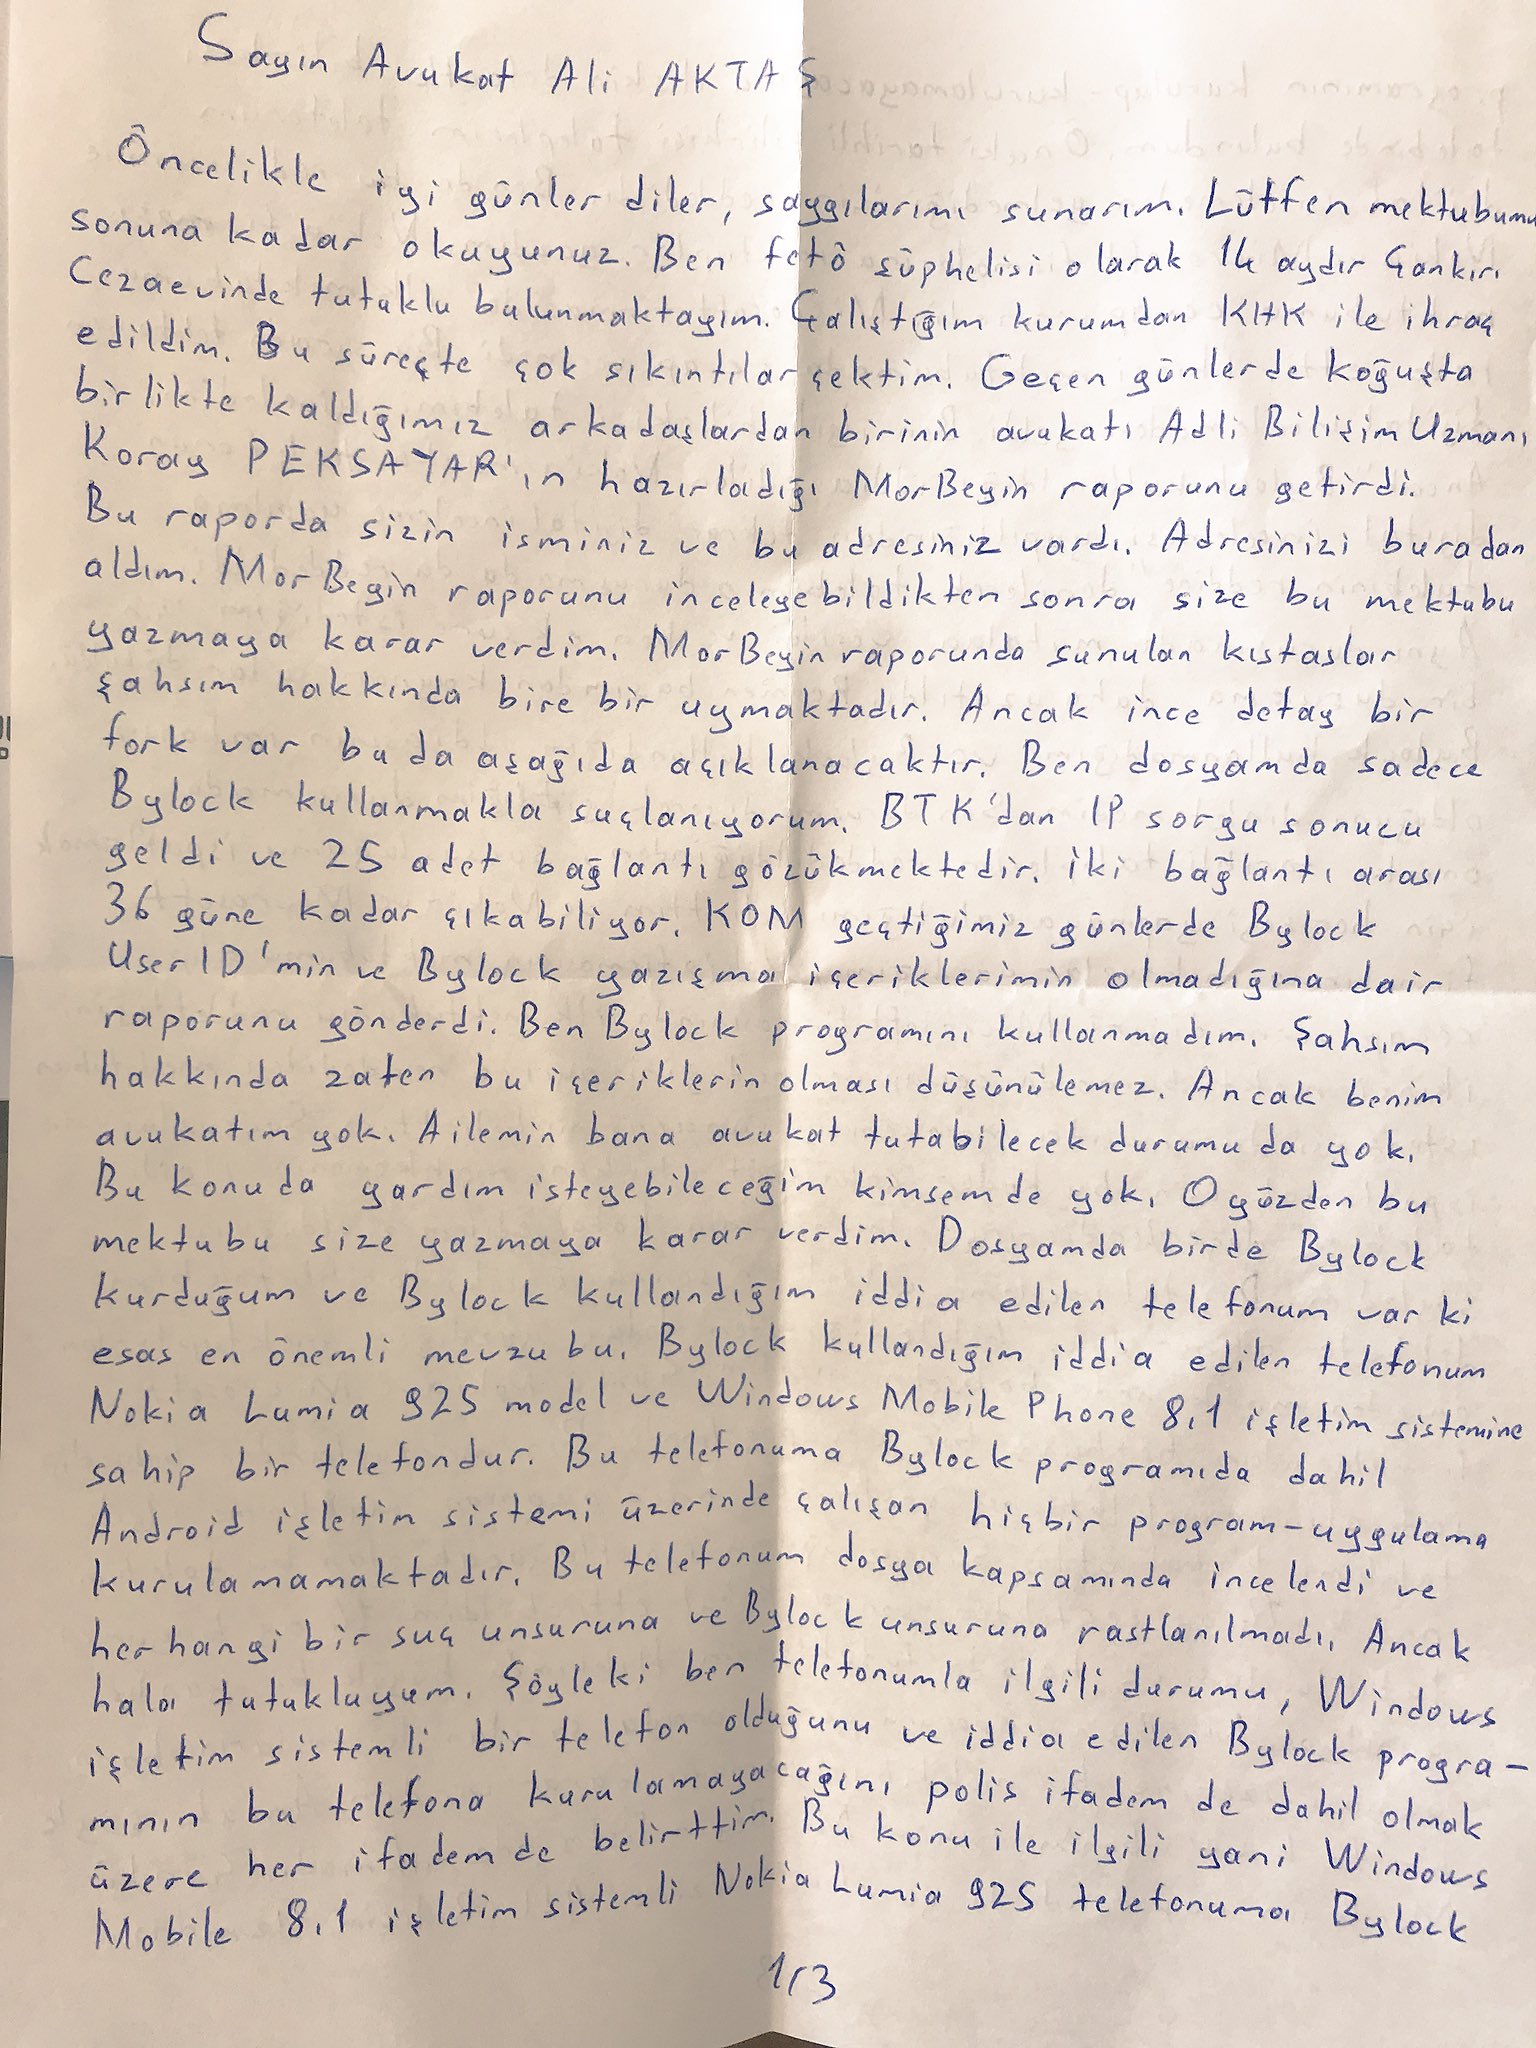 Sayın Avukat Ali AKTAŞ
Öncelikle iyi günler diler, saygılarımı sunarım. Lütfen mektubumu
sonuna kadar okuyunuz. Ben fetö şüphelisi olarak 14 aydır Çankırı
Cezaevinde tutuklu bulunmaktayım. Çalıştığım kurumdan KHK ile ihraç
edildim. Bu süreçte çok sıkıntılar çektim. Geçen günlerde koğuşta
birlikte kaldığımız arkadaşlardan birinin avukatı Adli Bilişim Uzmanı
Koray PEKSAYAR'ın hazırladığı MorBeyin raporunu getirdi.
Bu raporda sizin isminiz ve bu adresiniz vardı. Adresinizi buradan
aldım. MorBeyin raporunu inceleyebildikten sonra size bu mektubu
yazmaya karar verdim. MorBeyin raporunda sunulan kıstaslar
şahsım hakkında bire bir uymaktadır. Ancak ince detay bir
fark var bu da aşağıda açıklanacaktır. Ben dosyamda sadece
Bylock kullanmakla suçlanıyorum. BTK'dan IP sorgu sonucu
geldi ve 25 adet bağlantı gözükmektedir. İki bağlantı arası
36 güne kadar çıkabiliyor. KOM geçtiğimiz günlerde Bylock
User ID'min ve Bylock yazışma içeriklerimin olmadığına dair
raporunu gönderdi. Ben Bylock programını kullanmadım. Şahsım
hakkında zaten bu içeriklerin olması düşünülemez. Ancak benim
avukatım yok. Ailemin bana avukat tutabilecek durumu da yok.
Bu konuda yardım isteyebileceğim kimsemde yok. O yüzden bu
mektubu size yazmaya karar verdim. Dosyamda birde Bylock
kurduğum ve Bylock kullandığım iddia edilen telefonum var ki
esas en önemli mevzu bu. Bylock kullandığım iddia edilen telefonum
Nokia Lumia 925 model ve Windows Mobile Phone 8.1 işletim sistemine
sahip bir telefondur. Bu telefonuma Bylock programıda dahil
Android işletim sistemi üzerinde çalışan hiçbir program-uygulama
kurulamamaktadır. Bu telefonum dosya kapsamında incelendi ve
herhangi bir suç unsuruna ve Bylock unsuruna rastlanılmadı. Ancak
hala tutukluyum. Şöyleki ben telefonumla ilgili durumu, Windows
işletim sistemli bir telefon olduğunu ve iddia edilen Bylock progra-
mının bu telefona kurulamayacağını polis ifadem de dahil olmak
üzere her ifademde belirttim. Bu konu ile ilgili yani Windows
Mobile 8.1 işletim sistemli Nokia Lumia 925 telefonuma Bylock
1/3